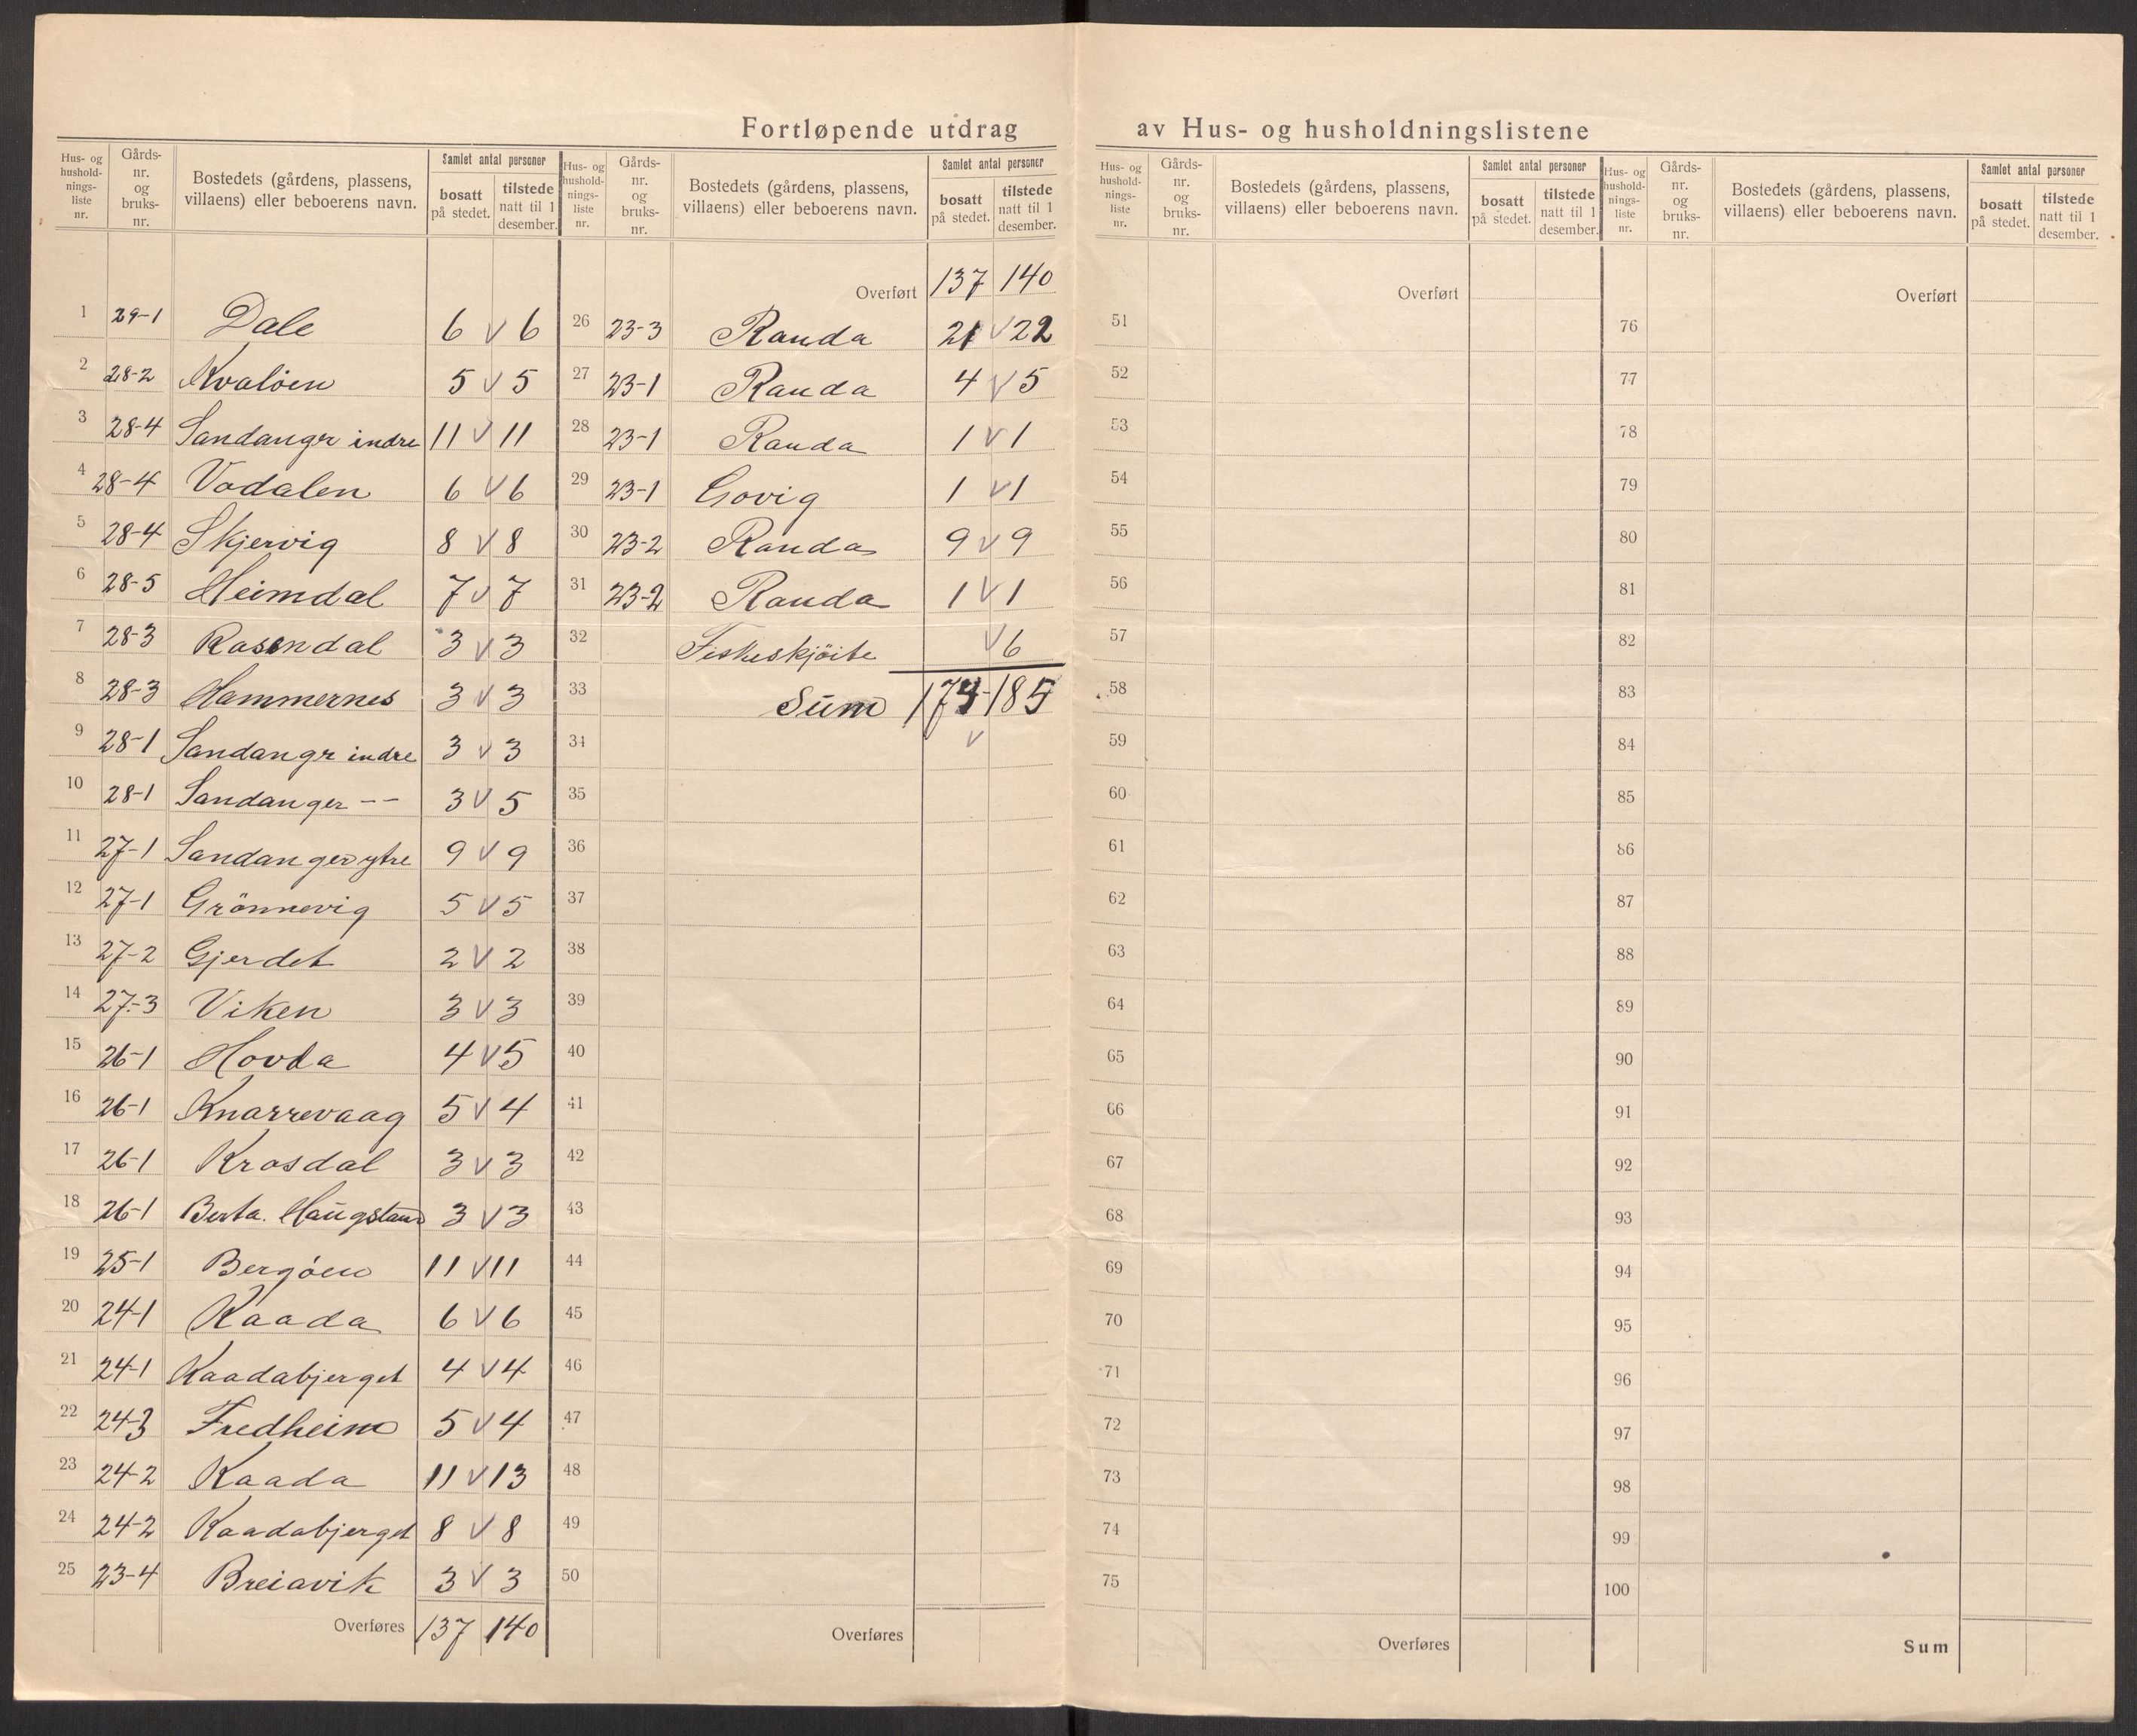 Fortløpende utdrag av Hus- og husholdningslistene
Hus- og hushold-nings-liste nr. | Gårds-nr. og bruks-nr. | Bostedets (gårdens, plassens, villaens) eller beboerens navn. | Samlet antal personer | bosatt på stedet. | tilstede natt til 1 desember.
1 29-1 Dale 6 v 6
2 28-2 Kvaløen 5 v 5
3 28-4 Sandangr indre 11 v 11
4 28-4 Vodalen 6 v 6
5 28-4 Skjervig 8 v 8
6 28-5 Heimdal 7 v 7
7 28-3 Rosendal 3 v 3
8 28-3 Hammernes 3 v 3
9 28-1 Sandangr indre 3 v 3
10 28-1 Sandanger -- 3 v 5
11 27-1 Sandanger ytre 9 v 9
12 27-1 Grönnevig 5 v 5
13 27-2 Gjerdet 2 v 2
14 27-3 Viken 3 v 3
15 26-1 Hovda 4 v 5
16 26-1 Knarrevaag 5 v 4
17 26-1 Krosdal 3 v 3
18 26-1 Berta. Haugstand 3 v 3
19 25-1 Bergöen 11 v 11
20 24-1 Kaada 6 v 6
21 24-1 Kaadabjerget 4 v 4
22 24-3 Fredheim 5 v 4
23 24-2 Kaada 11 v 13
24 24-2 Kaadabjerget 8 v 8
25 23-4 Breiavik 3 v 3
Overføres 137 140
Hus- og hushold-nings-liste nr. | Gårds-nr. og bruks-nr. | Bostedets (gårdens, plassens, villaens) eller beboerens navn. | Samlet antal personer | bosatt på stedet. | tilstede natt til 1 desember.
Overført 137 140
26 23-3 Randa 21 v 22
27 23-1 Randa 4 v 5
28 23-1 Randa 1 v 1
29 23-1 Govig 1 v 1
30 23-2 Randa 9 v 9
31 23-2 Randa 1 v 1
32 Fiskeskjöite v 6
33 Sum 174-185
34 v
35
36
37
38
39
40
41
42
43
44
45
46
47
48
49
50
Overføres
Hus- og hushold-nings-liste nr. | Gårds-nr. og bruks-nr. | Bostedets (gårdens, plassens, villaens) eller beboerens navn. | Samlet antal personer | bosatt på stedet. | tilstede natt til 1 desember.
Overført
51
52
53
54
55
56
57
58
59
60
61
62
63
64
65
66
67
68
69
70
71
72
73
74
75
Overføres
Hus- og hushold-nings-liste nr. | Gårds-nr. og bruks-nr. | Bostedets (gårdens, plassens, villaens) eller beboerens navn. | Samlet antal personer | bosatt på stedet. | tilstede natt til 1 desember.
Overført
76
77
78
79
80
81
82
83
84
85
86
87
88
89
90
91
92
93
94
95
96
97
98
99
100
Sum